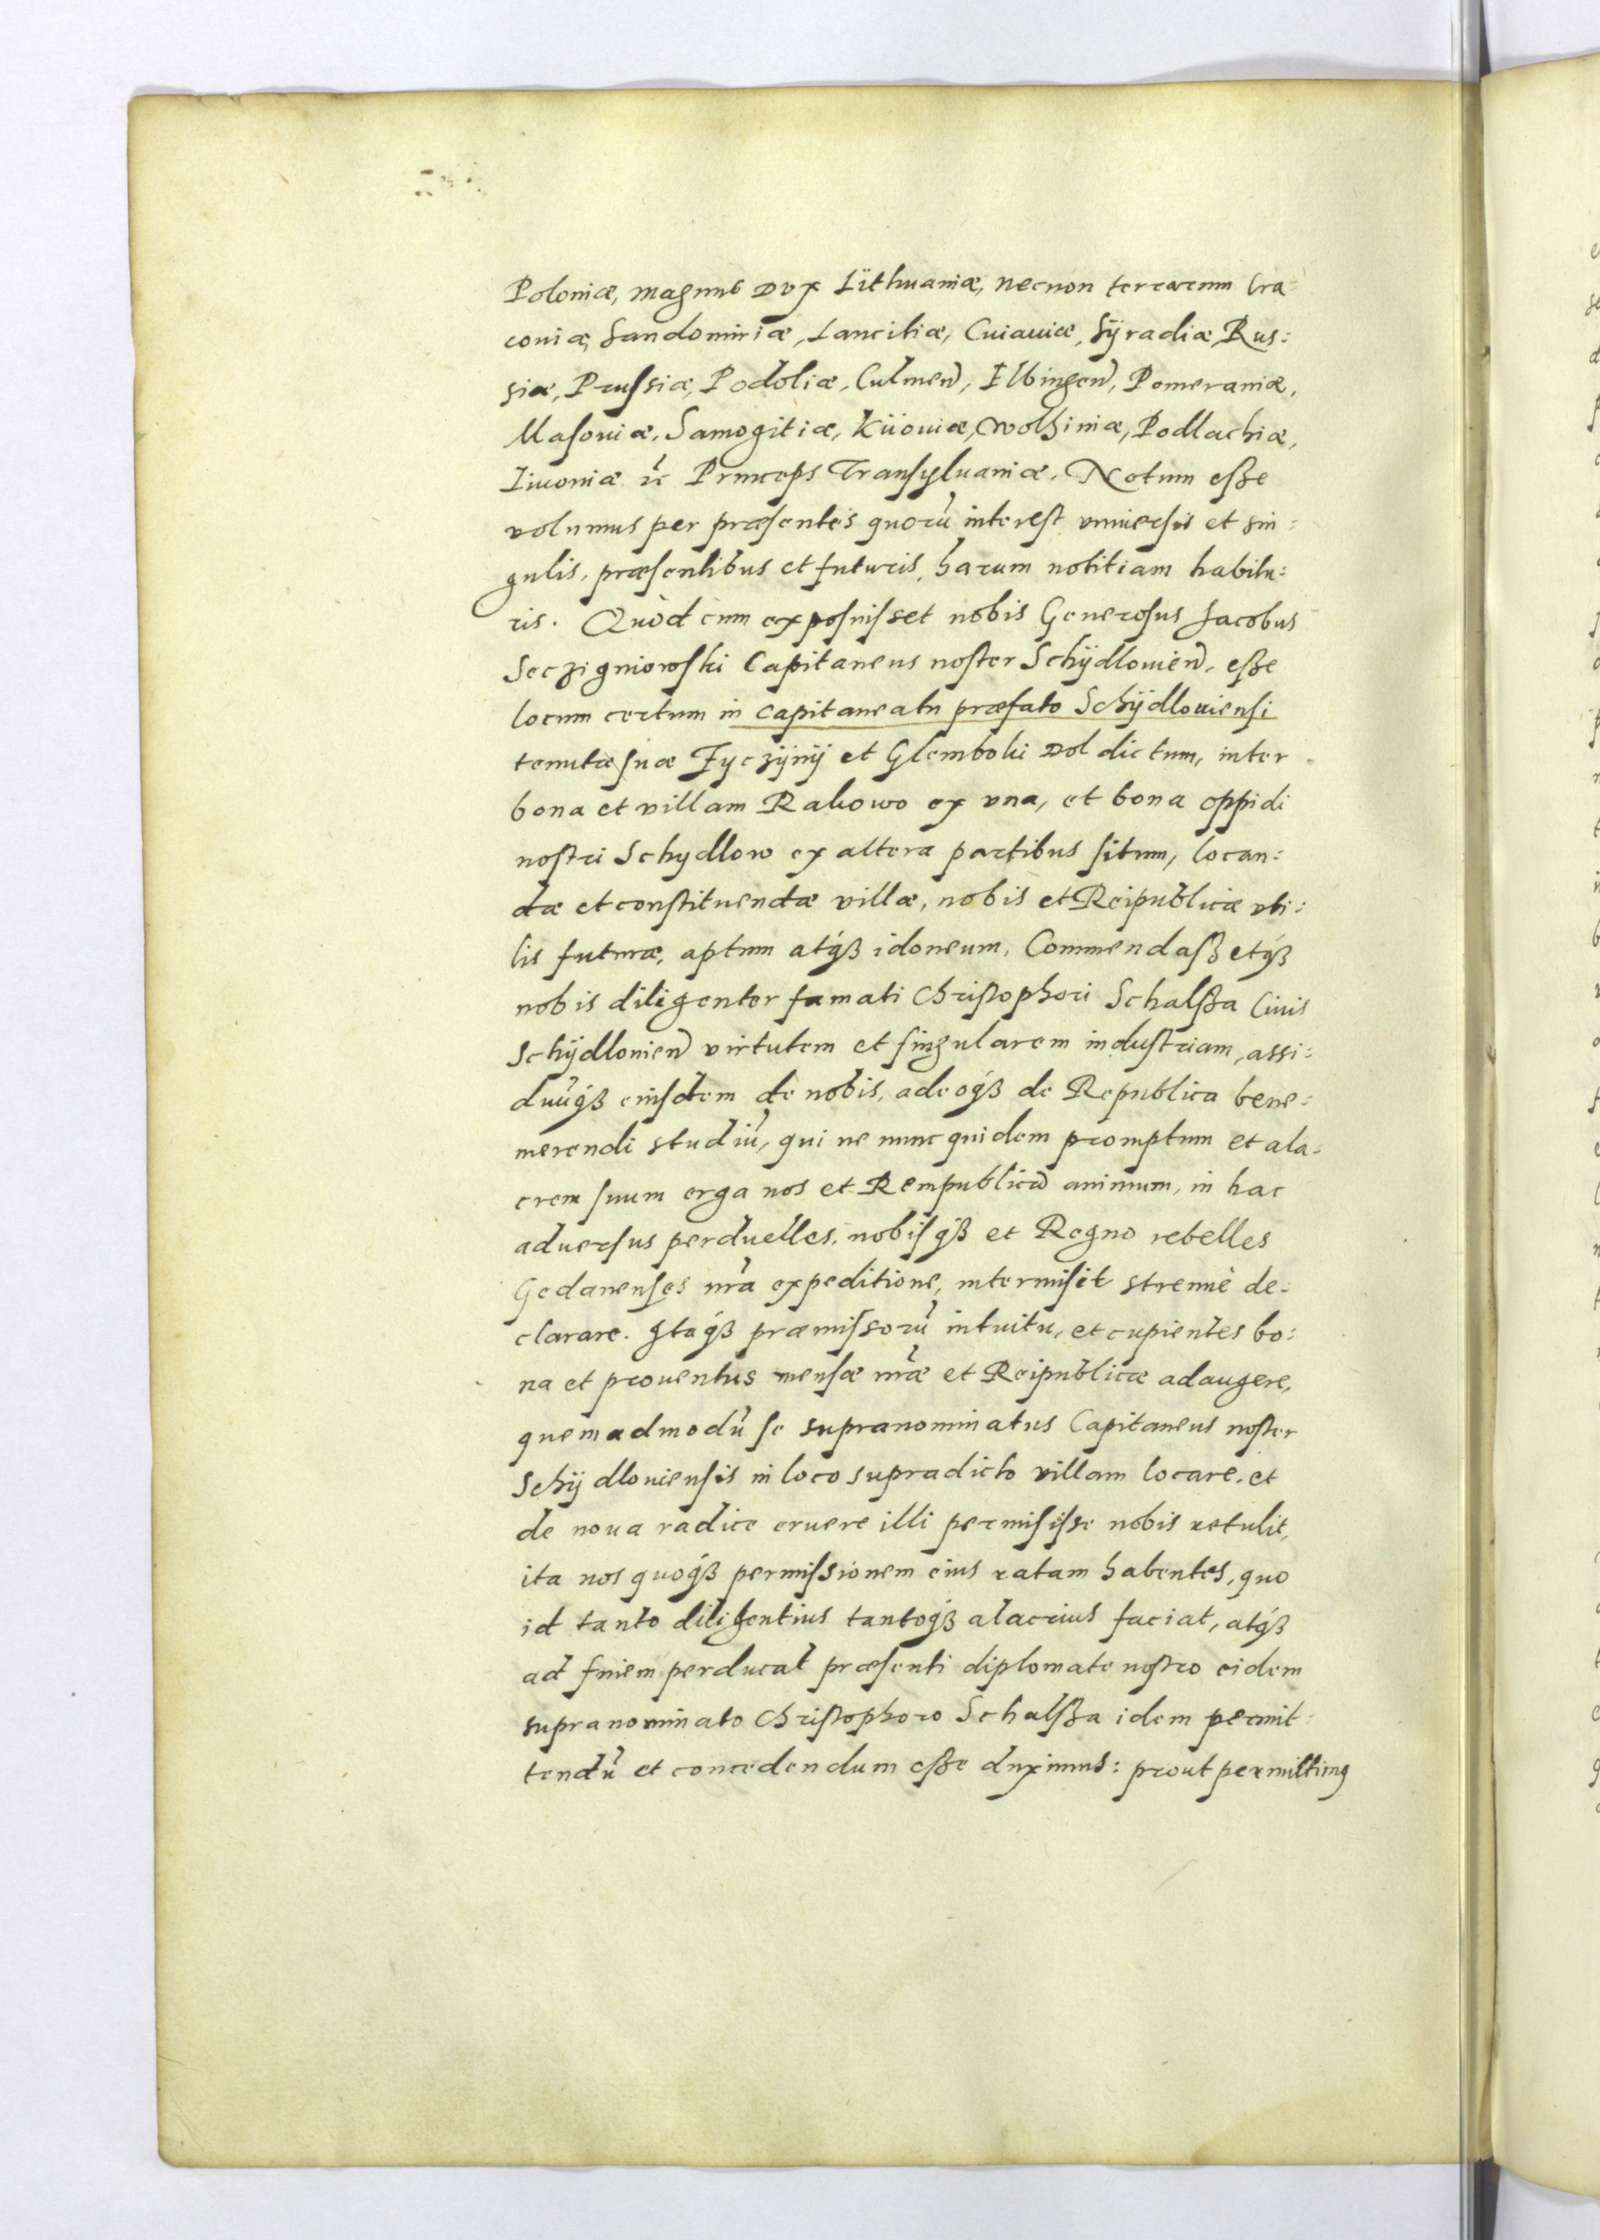 Poloniæ, magnus Dux Lithuaniæ, necnon terrarum Cra:
coviæ, Sandomiriæ, Lanciciæ, Cuiaviæ, Sÿradiæ, Rus:
siæ, Prussiæ, Podoliæ, Culmen̄, Elbingen̄, Pomeraniæ,
Masoviæ, Samogitiæ, Kiioviæ, Wolhiniæ, Podlachiæ,
Livoniæ ꝛc̃ Princeps Transylvaniæ. Notum esse
volumus per præsentes quorũ interest universis et sin:
gulis, præsentibus et futuris, harum notitiam habitu:
ris. Quòd cum exposuisset nobis Generosus Jacobus
Seczigniowski Capitaneus noster Schÿdlovien̄, esse
locum certum in capitaneatu præfato Schÿdloviensi
tenutæ suæ Fyczÿnÿ et Glemboki Dol dictum, inter
bona et villam Rakowo ex una, et bona oppidi
nostri Schydlow ex altera partibus situm, locan:
dæ et constituendæ villæ, nobis et Reipublicæ uti:
lis futuræ, aptum atq́ꝫ idoneum. Commendassetq́ꝫ
nobis diligenter famati Christophori Schalsza Civis
Schÿdlovien̄ virtutem et singularem industriam, assi:
duũq́ꝫ eiusdem de nobis, adeoq́ꝫ de Republica bene:
merendi studiũ, qui ne nunc quidem promptum et ala:
crem suum erga nos et Rempublicā animum, in hac
adversus perduelles, nobisq́ꝫ et Regno rebelles
Gedanenses nr̃a expeditione, intermisit strenuè de:
clarare. Itaq́ꝫ præmissorũ intuitu, et cupientes bo:
na et proventus mensæ nr̃æ et Reipublicæ adaugere,
quemadmodũ se supranominatus Capitaneus noster
Schÿdloviensis in loco supradicto villam locare, et
de nova radice eruere illi permisisse nobis retulit,
ita nos quoq́ꝫ permissionem eius ratam habentes, quo
id tanto diligentius tantoq́ꝫ alacrius faciat, atq́ꝫ
ad finem perducat præsenti diplomate nostro eidem
supranominato Christophoro Schalsza idem permit:
tendũ et concedendum esse duximus: prout permittimꝰ